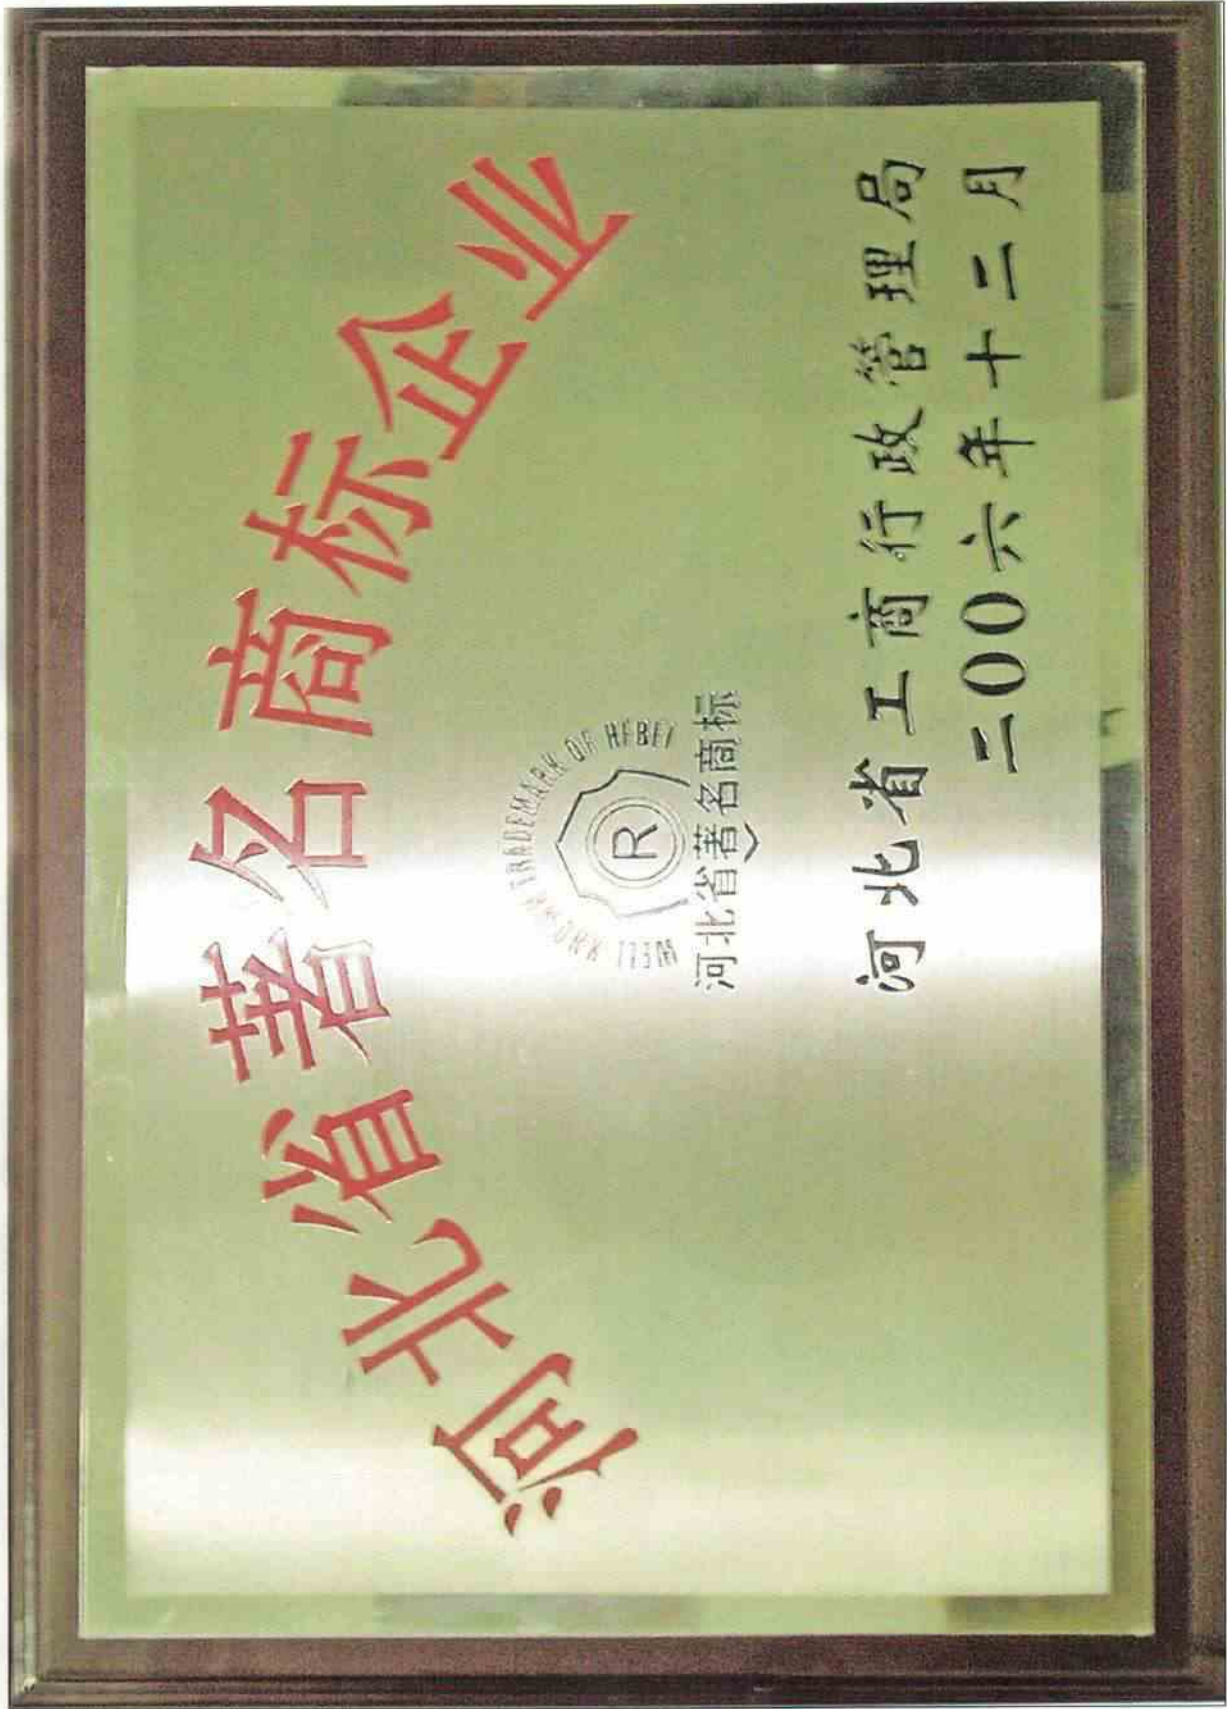 河北省著名商标企业
WELL KNOWN TRADEMARK OF HEBEI
R
河北省著名商标
河北省工商行政管理局
二00六年十二月